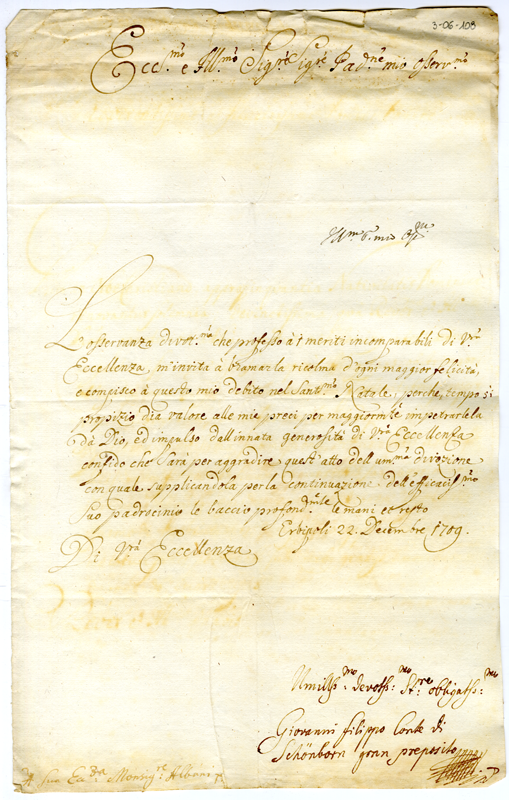 3-06-108
Ecc.mo e Ill.mo Sig.re Sig.re Pad.ne mio osserv.mo
L'osservanza divot.ma che professo à i meriti incomparabili di V.ra
Eccellenza, m'invita à bramarla ricolma d'ogni maggior felicità,
e compisco à questo mio debito nel Sant.mo Natale, perche, tempo si
propizio dia valore alle mie preci per maggiorm.te impetrarcela
dà Dio, ed impulso dall'innata generosità di V.ra Eccellenza
confido che sarà per aggradire quest'atto dell'um.ma divozione
con quale supplicandola per la continuazione dell'efficaciss.mo
suo padrocinio le baccio profond.mte le mani et resto
Erbipoli 22. Decembre 1709.
Di V.ra Eccellenza
Umiliss.mo devotss.mo obligatss.mo
Giovanni filippo Conte di
Schönborn gran preposito
Monsig.re Albani